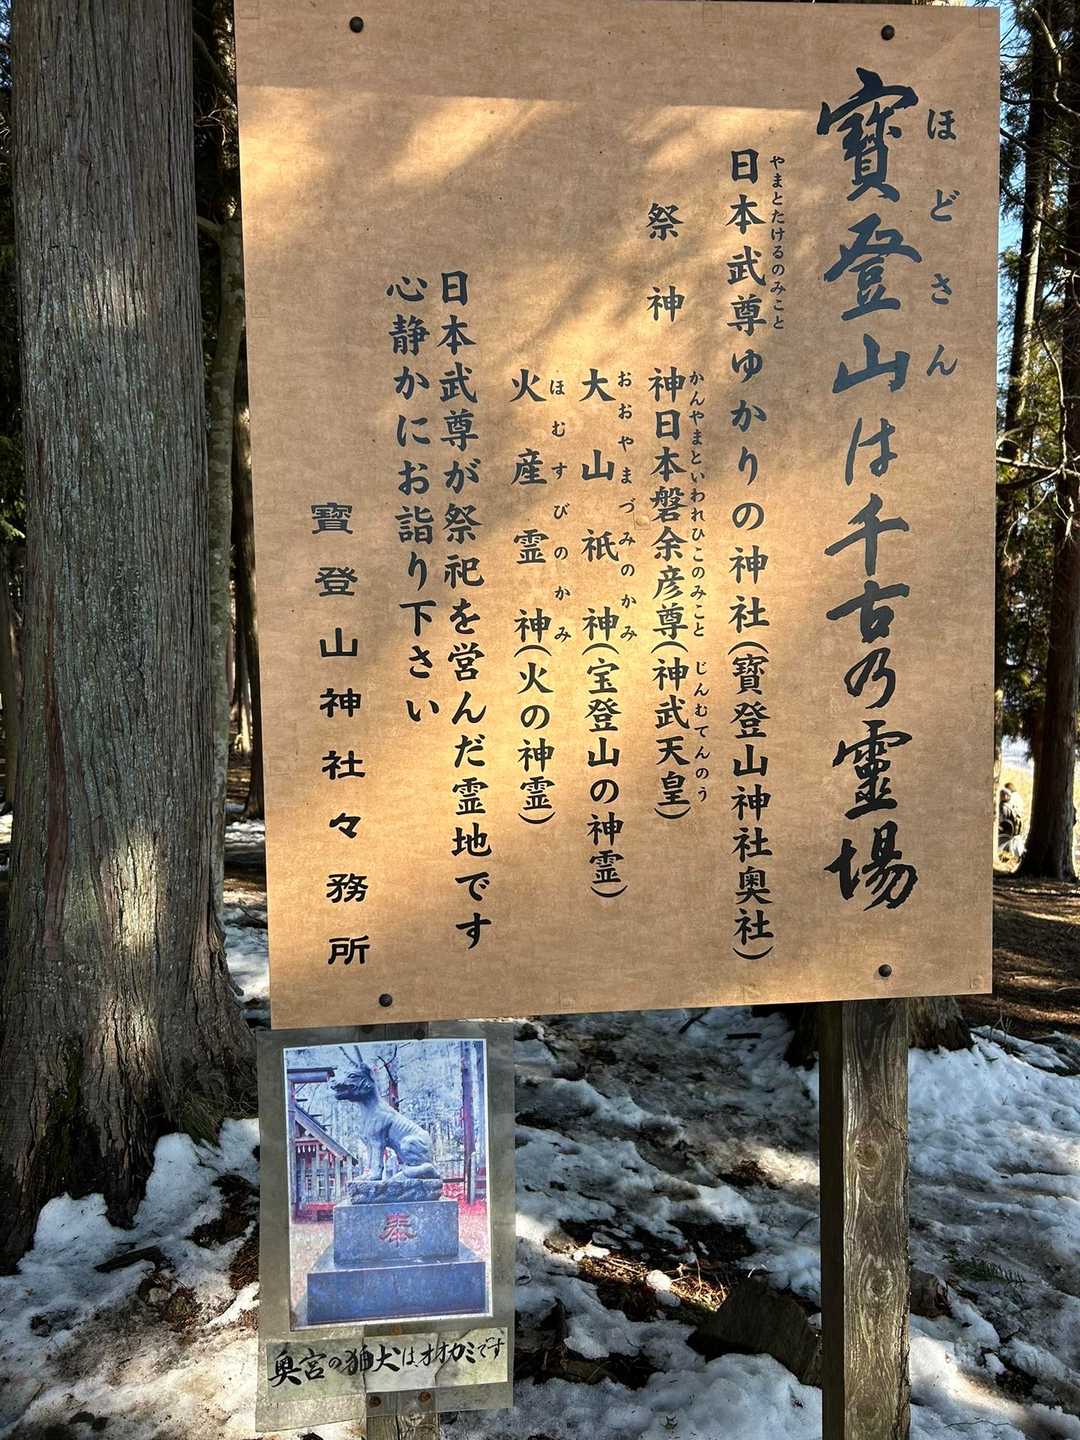 寶登山は千古乃靈場
ほどさん
日本武尊ゆかりの神社(寶登山神社奥社)
やまとたけるのみこと
祭神 神日本磐余彦尊(神武天皇)
かんやまといわれひこのみこと じんむてんのう
大山祇神(宝登山の神霊)
おおやまづみのかみ
火産霊神(火の神霊)
ほむすびのかみ
日本武尊が祭祀を営んだ霊地です
心静かにお詣り下さい
寶登山神社々務所
奉
奥宮の狛犬はオオカミです